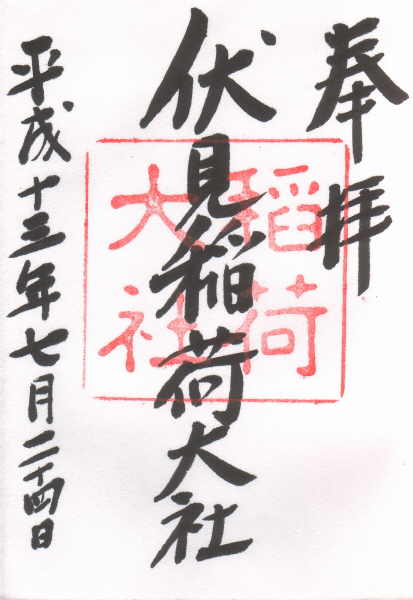 奉拝
伏見稲荷大社
稲荷
大社
平成十三年七月二十四日